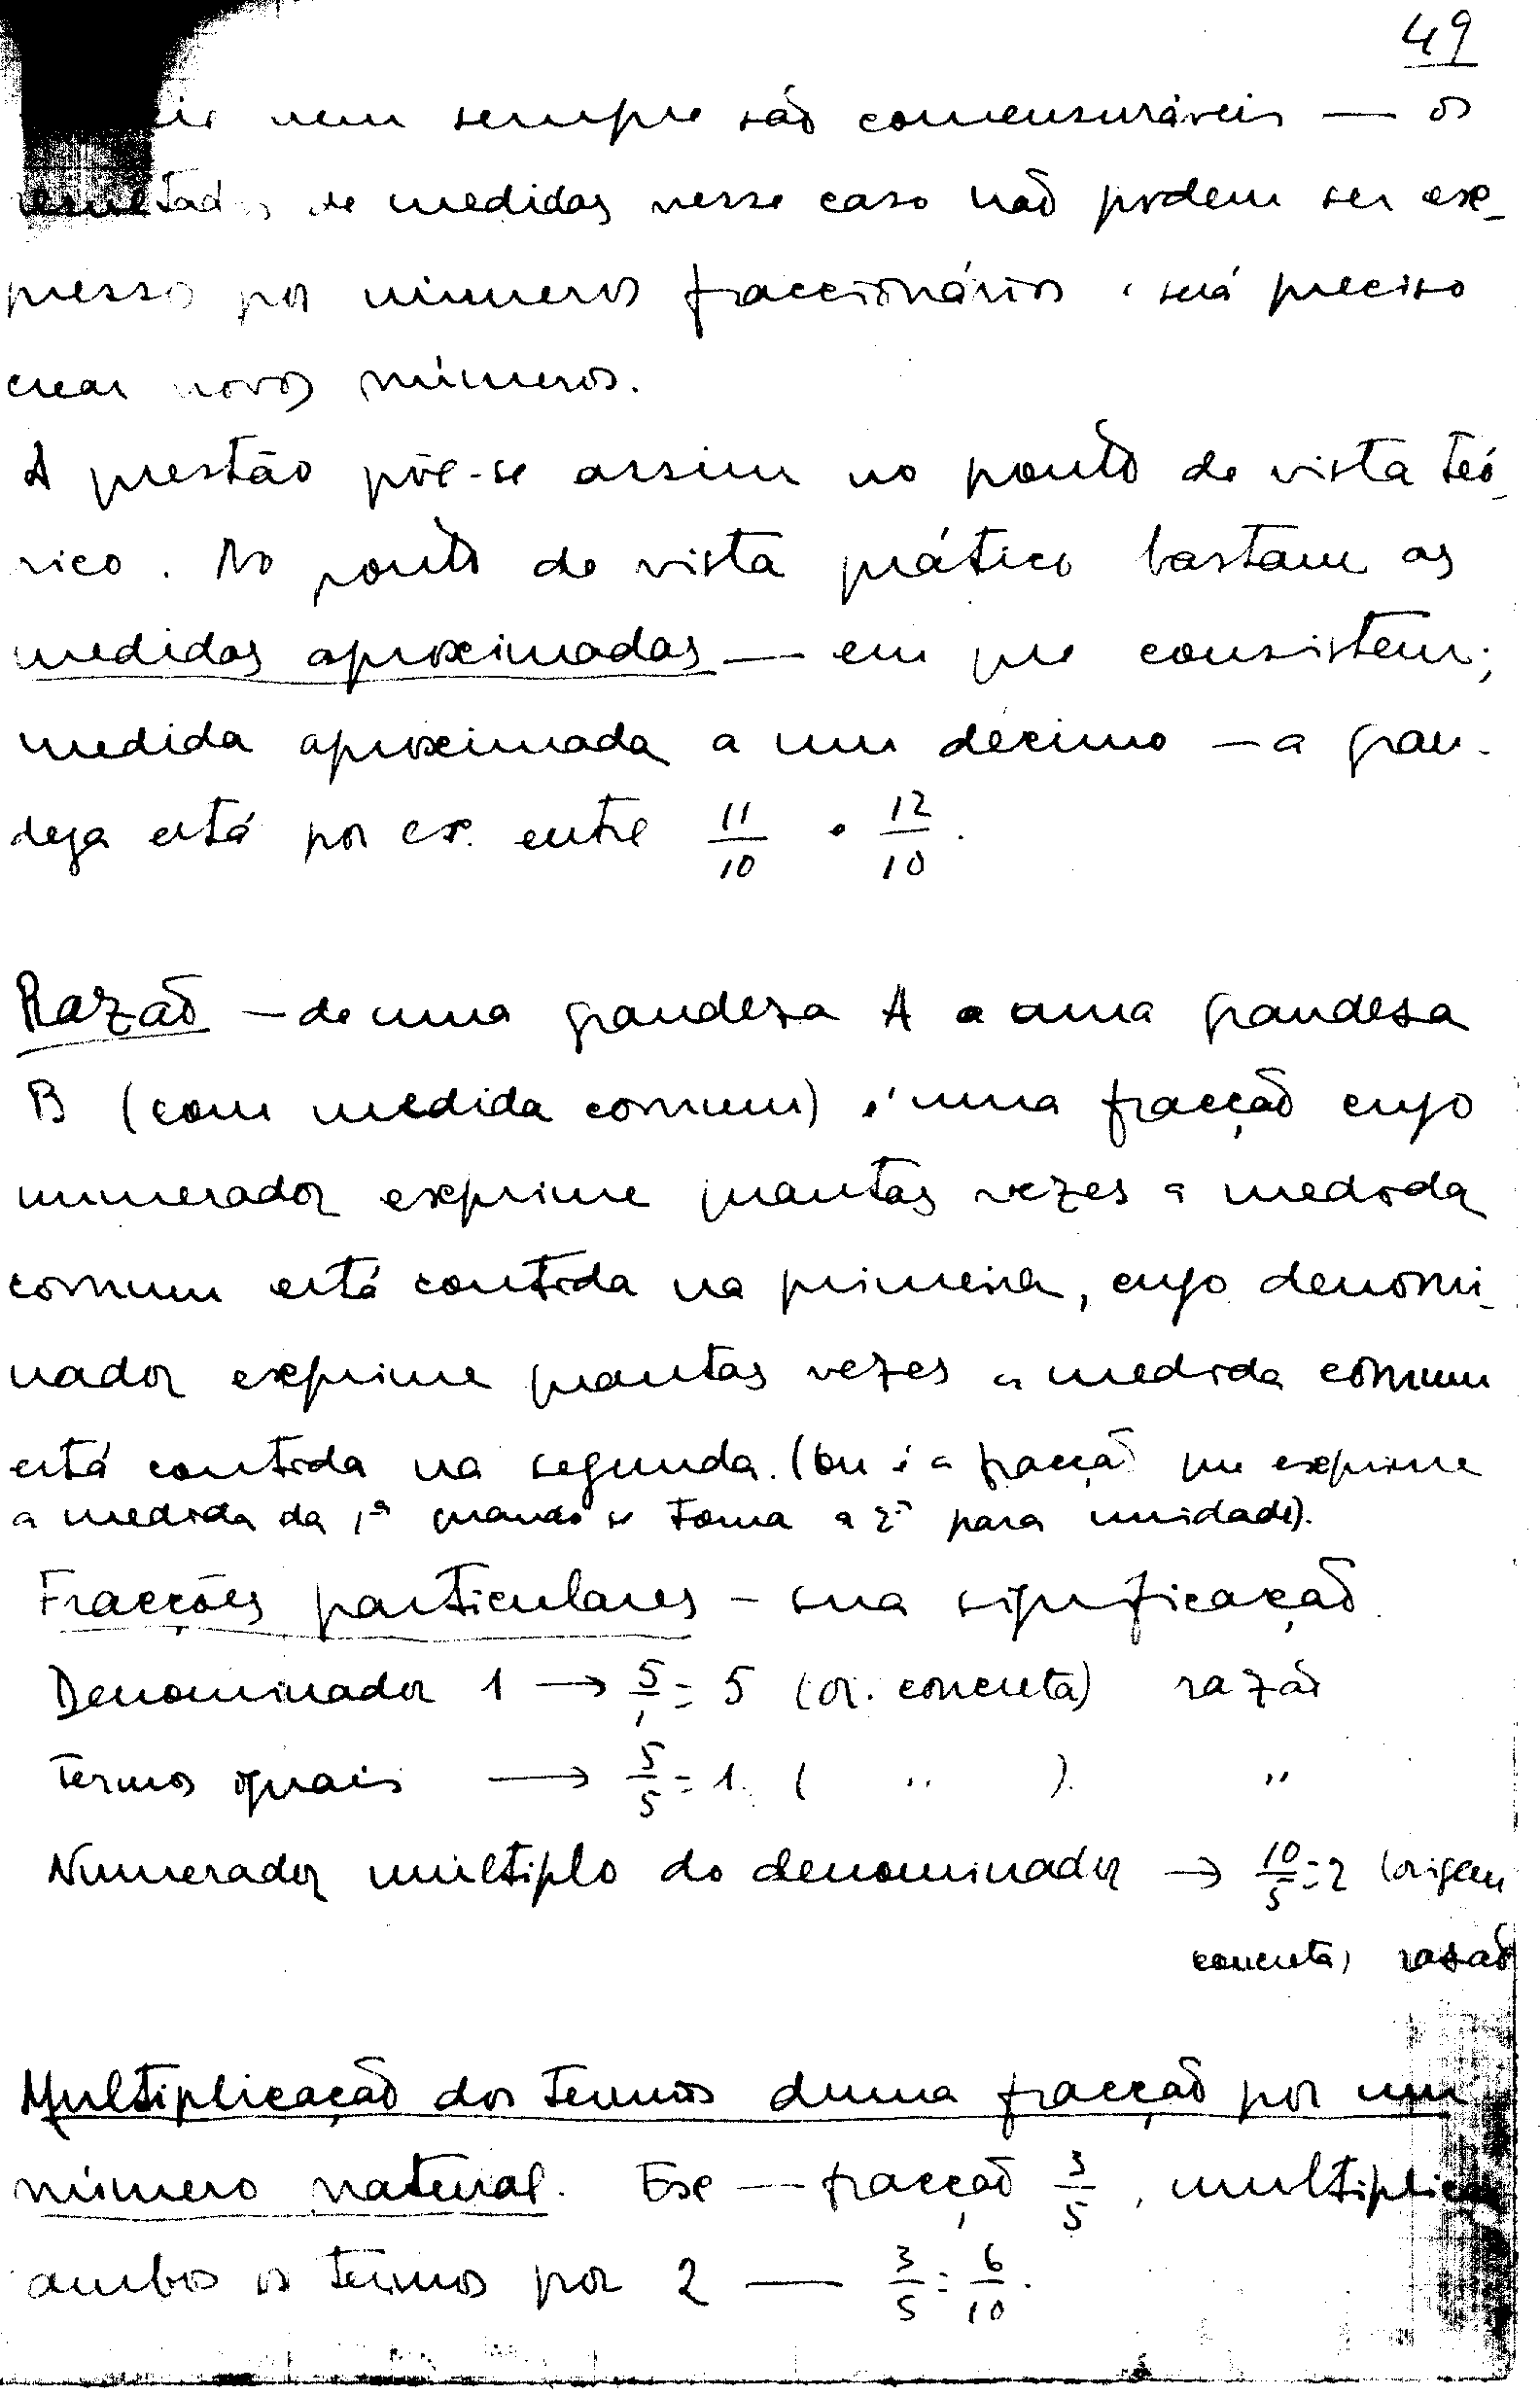 49
nem sempre são comensuráveis — os
resultados de medidas nesse caso não podem ser ex-
presso por números fraccionários, será preciso
crear novos números.
A questão põe-se assim no ponto de vista teó-
rico. No ponto de vista prático bastam as
medidas aproximadas — em que consistem;
medida aproximada a um décimo — a gran-
deza está por ex. entre 11/10 e 12/10.
Razão — de uma grandeza A a uma grandesa
B (com medida comum) é uma fracção cujo
numerador exprime quantas vezes a medida
comum está contida na primeira, cujo denomi-
nador exprime quantas vezes a medida comum
está contida na segunda. (Ou é a fracção que exprime
a medida da 1ª quando se toma a 2ª para unidade).
Fracções particulares — sua significação
Denominador 1 → 5/1 = 5 (or. concreta) razão
Termos iguais → 5/5 = 1. ( " ). "
Numerador múltiplo do denominador → 10/5 = 2 (origem
concreta, rasão
Multiplicação dos termos duma fracção por um
número natural. Ex — fracção 3/5, multiplicar
ambos os termos por 2 — 3/5 = 6/10.